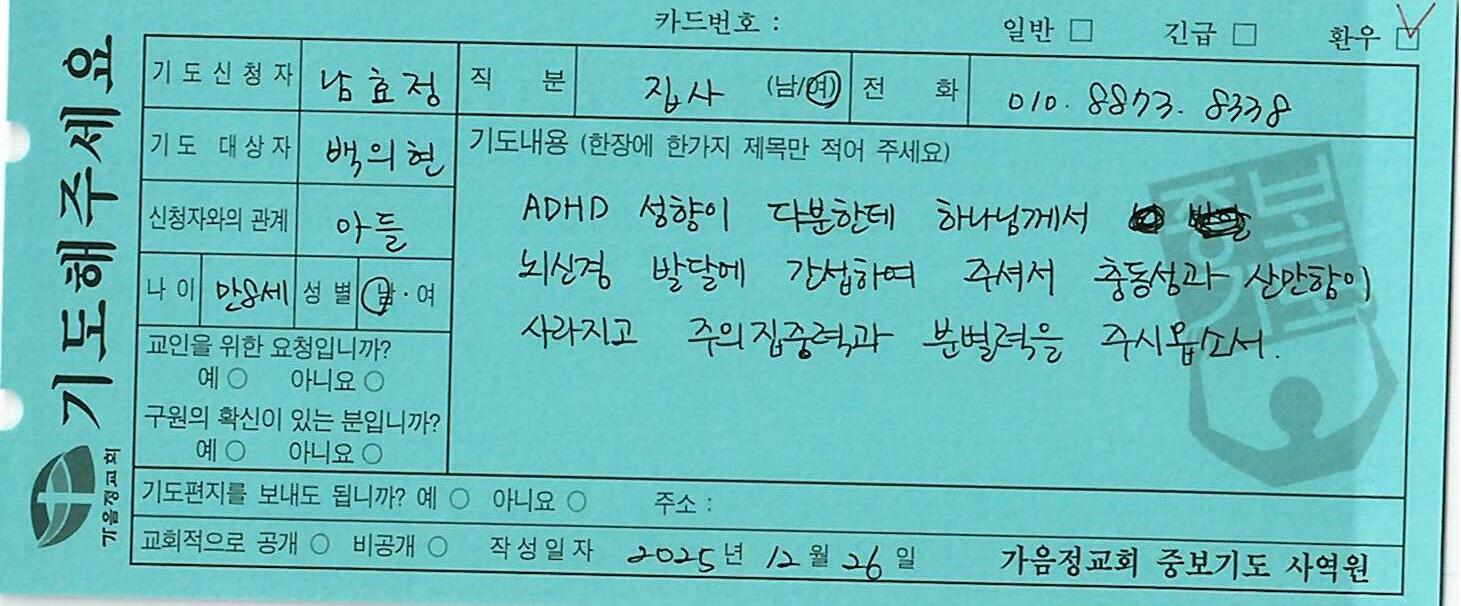 카드번호 : 일반 □ 긴급 □ 환우 □
기도해주세요
가음정교회
기도신청자 남효정 직 분 집사 (남/여) 전 화 010. 8873. 8338
기도 대상자 백의현 기도내용 (한장에 한가지 제목만 적어 주세요)
신청자와의 관계 아들
나 이 만8세 성 별 남 · 여
ADHD 성향이 다분한데 하나님께서
뇌신경 발달에 간섭하여 주셔서 충동성과 산만함이
사라지고 주의집중력과 분별력을 주시옵소서.
교인을 위한 요청입니까?
예 ○ 아니요 ○
구원의 확신이 있는 분입니까?
예 ○ 아니요 ○
중보기도
기도편지를 보내도 됩니까? 예 ○ 아니요 ○ 주소 :
교회적으로 공개 ○ 비공개 ○ 작성일자 2025년 12월 26일 가음정교회 중보기도 사역원